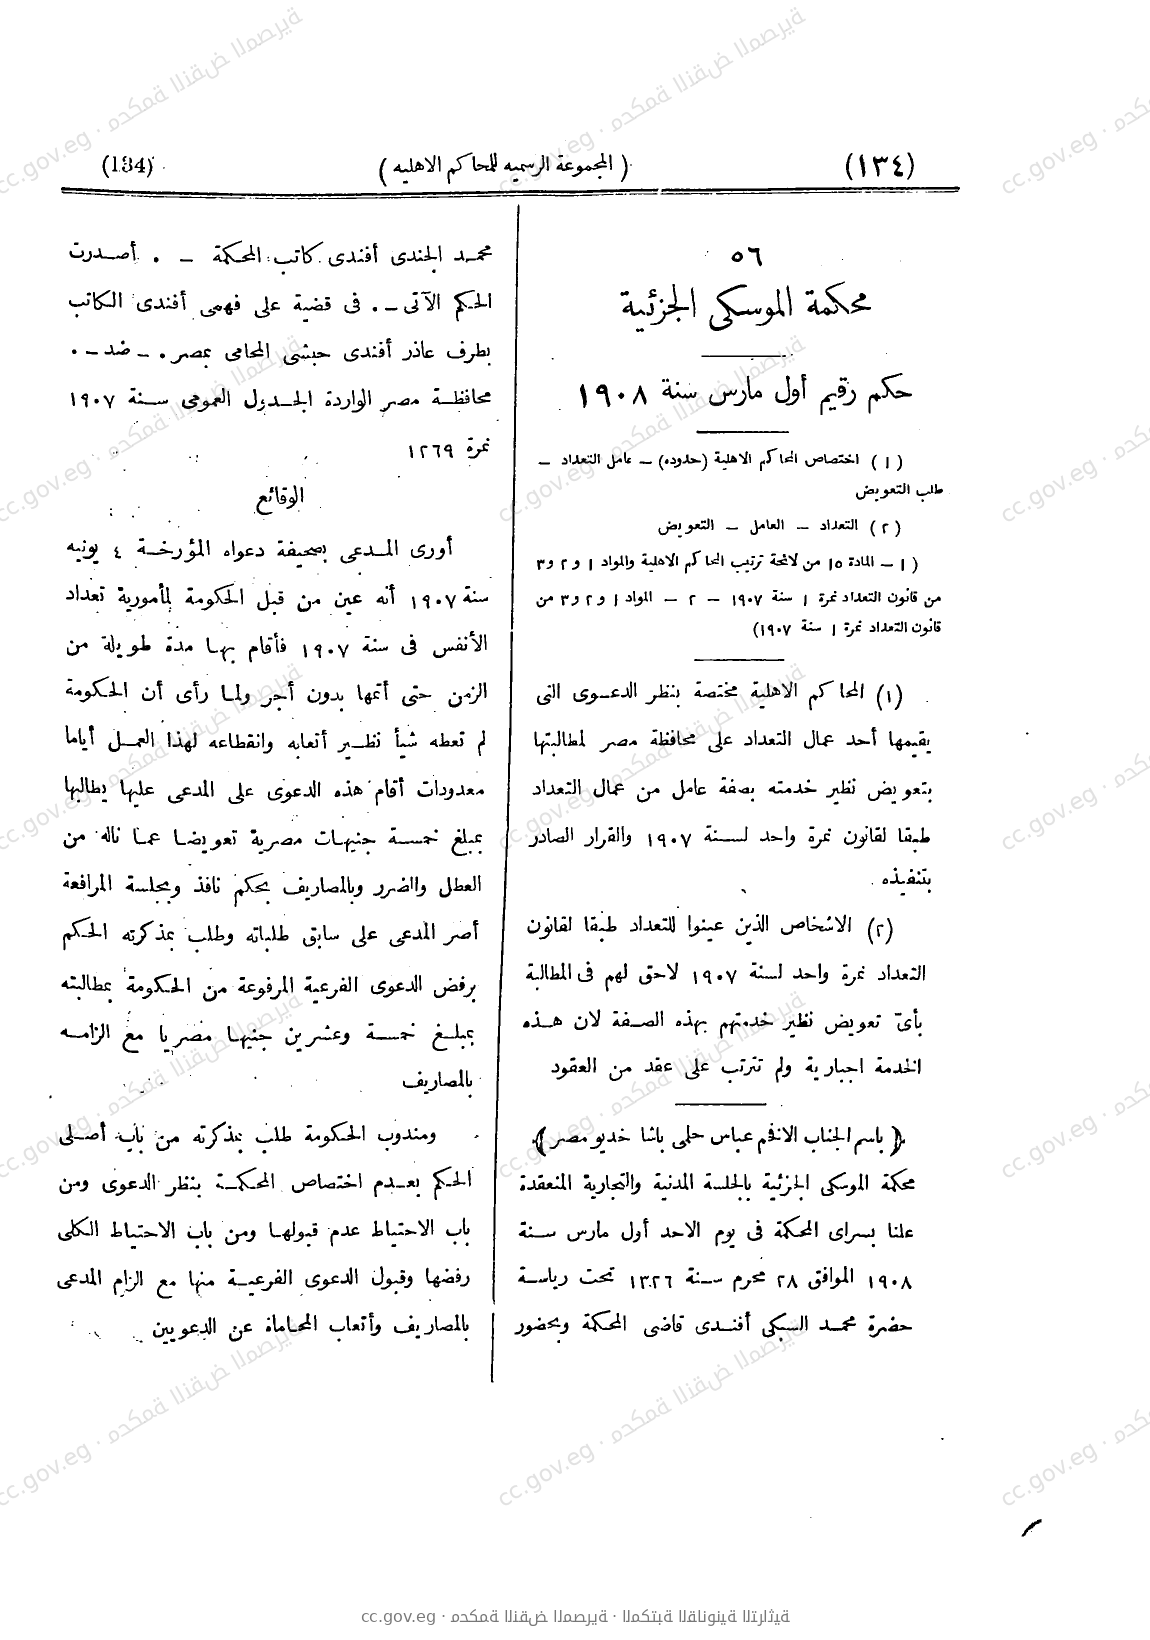 (١٣٤)
( المجموعة الرسميه للمحاكم الاهليه )
(134)
٥٦
محكمة الموسكى الجزئية
حكم رقيم أول مارس سنة ١٩٠٨
( ١ ) اختصاص المحاكم الاهلية (حدوده) – عامل التعداد –
طلب التعويض
( ٢ ) التعداد – العامل – التعويض
( ١ – المادة ١٥ من لائحة ترتيب المحاكم الاهلية والمواد ١ و ٢ و ٣
من قانون التعداد نمرة ١ سنة ١٩٠٧ – ٢ – المواد ١ و ٢ و ٣ من
قانون التعداد نمرة ١ سنة ١٩٠٧)
(١) المحاكم الاهلية مختصة بنظر الدعوى التى
يقيمها أحد عمال التعداد على محافظة مصر لمطالبتها
بتعويض نظير خدمته بصفة عامل من عمال التعداد
طبقا لقانون نمرة واحد لسنة ١٩٠٧ والقرار الصادر
بتنفيذه
(٢) الاشخاص الذين عينوا للتعداد طبقا لقانون
التعداد نمرة واحد لسنة ١٩٠٧ لاحق لهم فى المطالبة
بأىّ تعويض نظير خدمتهم بهذه الصفة لان هذه
الخدمة اجبارية ولم تترتب على عقد من العقود
( باسم الجناب الافخم عباس حلمى باشا خديو مصر )
محكمة الموسكى الجزئية بالجلسة المدنية والتجارية المنعقدة
علنا بسراى المحكمة فى يوم الاحد أول مارس سنة
١٩٠٨ الموافق ٢٨ محرم سنة ١٣٢٦ تحت رياسة
حضرة محمد السبكى أفندى قاضى المحكمة وبحضور
محمد الجندى أفندى كاتب المحكمة – . أصدرت
الحكم الآتى – . فى قضية على فهمى أفندى الكاتب
بطرف عاذر أفندى حبشى المحامى بمصر . – ضد – .
محافظة مصر الواردة الجدول العمومى سنة ١٩٠٧
نمرة ١٢٦٩
الوقائع
أورى المدعى بصحيفة دعواه المؤرخة ٤ يونيه
سنة ١٩٠٧ أنه عين من قبل الحكومة لمأمورية تعداد
الأنفس فى سنة ١٩٠٧ فأقام بها مدة طويلة من
الزمن حتى أتمها بدون أجر ولما رأى أن الحكومة
لم تعطه شيأ نظير أتعابه وانقطاعه لهذا العمل أياما
معدودات أقام هذه الدعوى على المدعى عليها يطالبها
بمبلغ خمسة جنيهات مصرية تعويضا عما ناله من
العطل والضرر وبالمصاريف بحكم نافذ وبجلسة المرافعة
أصر المدعى على سابق طلباته وطلب بمذكرته الحكم
برفض الدعوى الفرعية المرفوعة من الحكومة بمطالبته
بمبلغ خمسة وعشرين جنيها مصريا مع الزامه
بالمصاريف
ومندوب الحكومة طلب بمذكرته من باب أصلى
الحكم بعدم اختصاص المحكمة بنظر الدعوى ومن
باب الاحتياط عدم قبولها ومن باب الاحتياط الكلى
رفضها وقبول الدعوى الفرعية منها مع الزام المدعى
بالمصاريف وأتعاب المحاماة عن الدعويين
cc.gov.eg · محكمة النقض المصرية · المكتبة القانونية التراثية